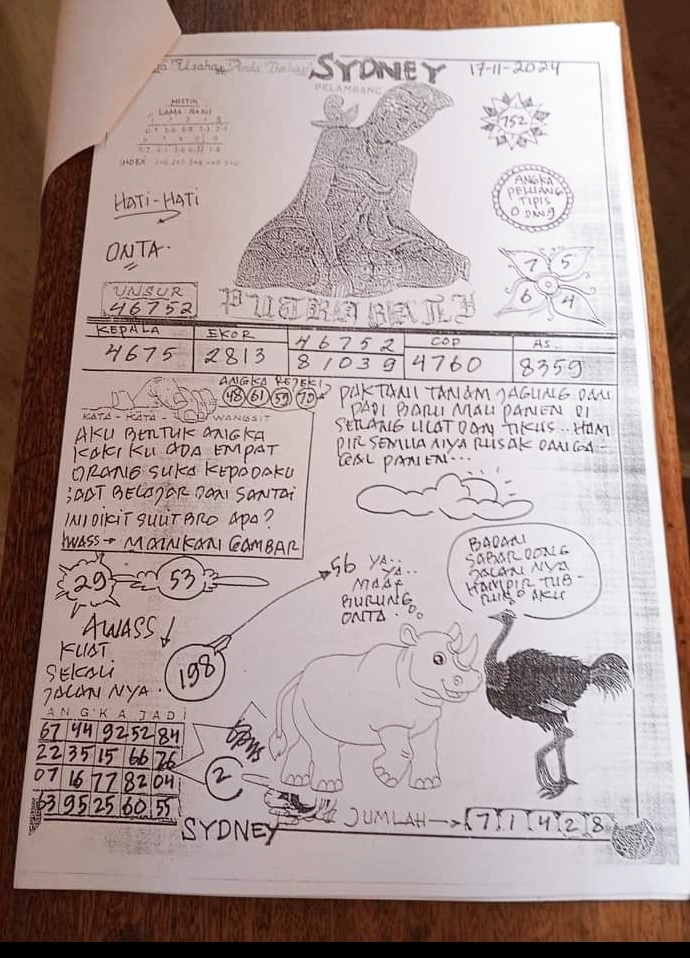 SYDNEY 17-11-2024
PELAMBANG
MISTIK
LAMA BARU
INDEX
752
HATI-HATI
ANGKA
PELUANG
TIPIS
0 DAN 9
ONTA
7 5
6 4
UNSUR
46752
PUTRA BALI
KEPALA EKOR 46752 COP AS
4675 2813 81039 4760 8359
ANGKA REJEKI
48 61
KATA-KATA WANGSIT
AKU BENTUK ANGKA
KAKI KU ADA EMPAT
ORANG SUKA KEPADAKU
SAAT BELAJAR DAN SANTAI
INI DIKIT SULIT BRO APA?
AWASS → MAINKAN GAMBAR
PAK TANI TANAM JAGUNG DAN
PADI BARU MAU PANEN DI
SERANG ULAT DAN TIKUS.. HAM
PIR SEMUA NYA RUSAK DAN GA-
GAL PANEN...
29 53
56 YA..
YA..
MAAF
BURUNG
ONTA..
BADAN
SABAR DONG
JALAN NYA
HAMPIR TUB-
RUK AKU
AWASS!
KUAT
SEKALI
JALAN NYA.
198
ANGKA JADI
67 44 92 52 84
22 35 15 66 76
07 16 77 82 04
63 95 25 60 55
BBFS
2
JUMLAH → 7 1 4 2 8
SYDNEY